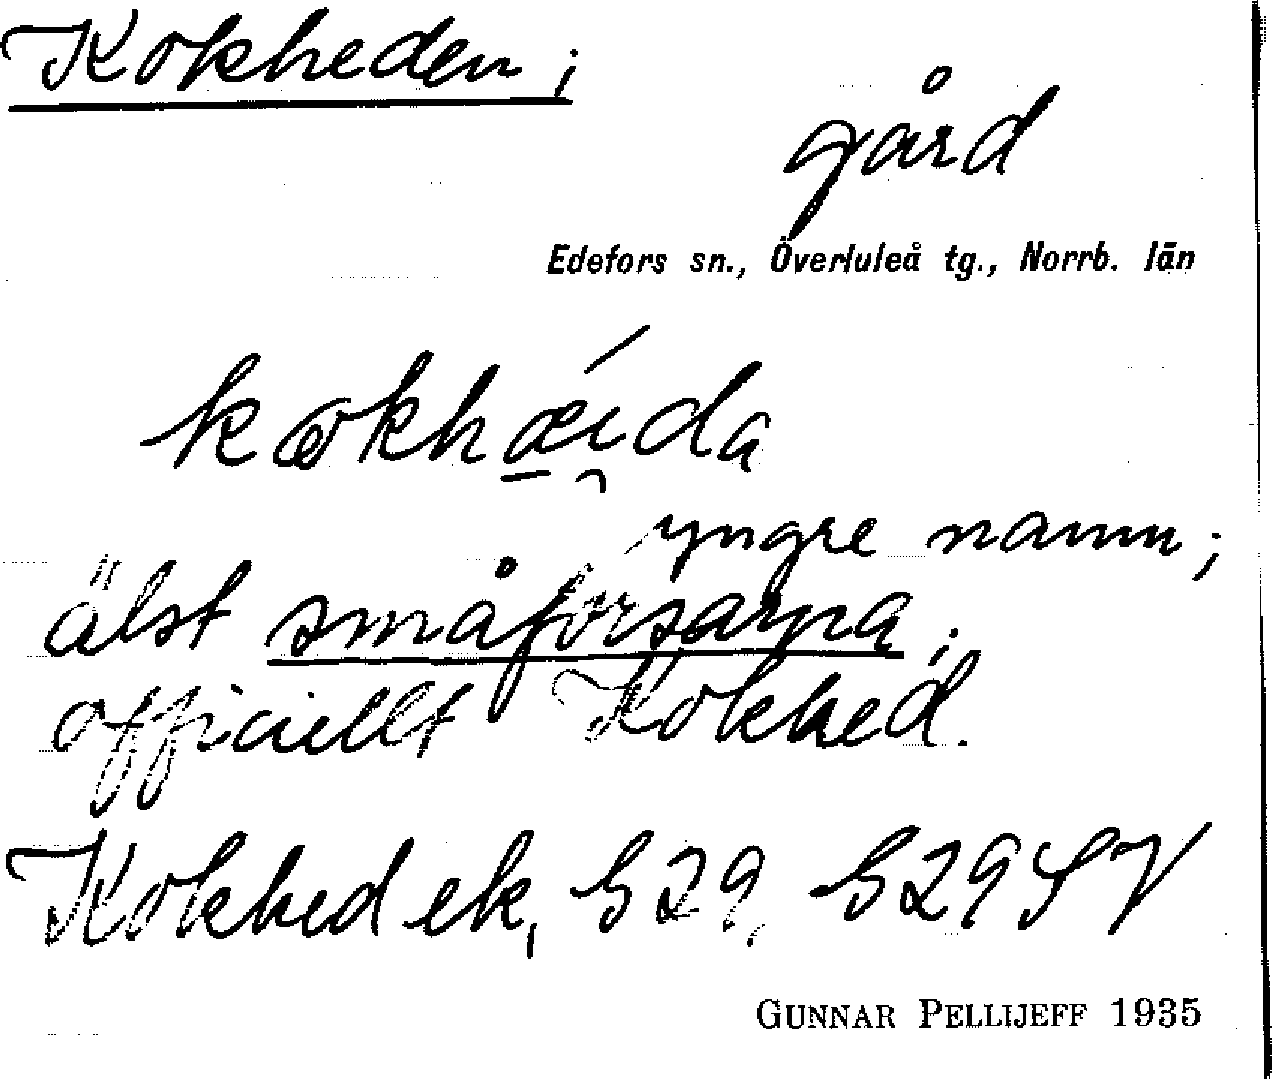 Kokheden;
gård
Edefors sn., Överluleå tg., Norrb. län
kœkhæ̱í̯da
yngre namn;
älst småforsarna;
officiellt Kokhed.
Kokhed ek, S29, S29SV
GUNNAR PELLIJEFF 1935